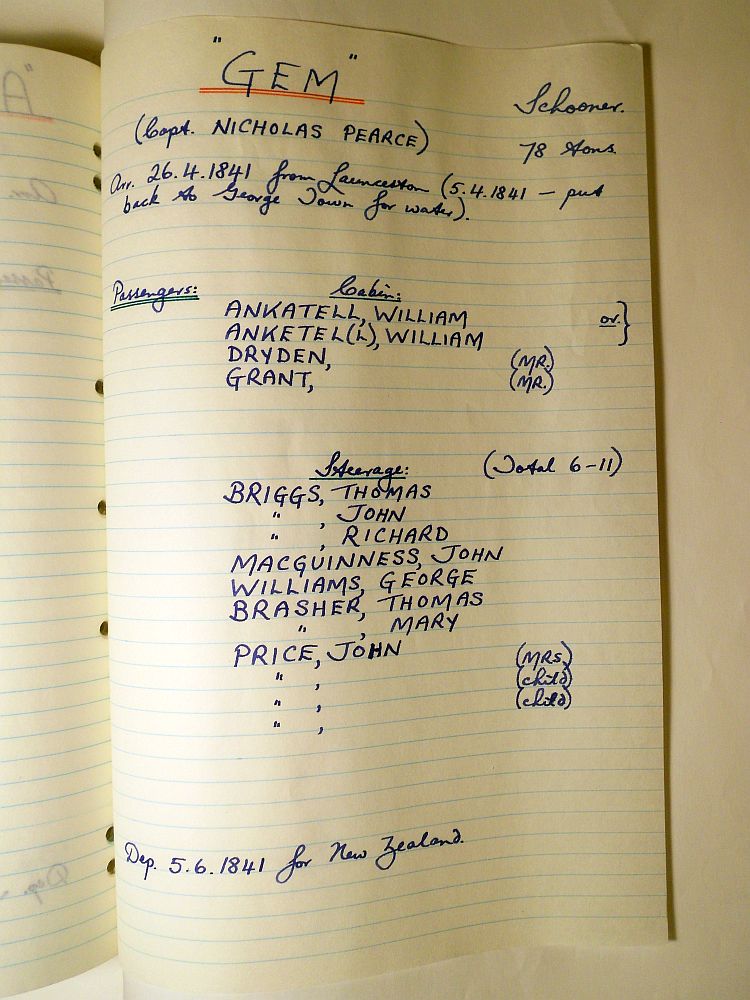 "GEM"
Schooner.
(Capt. NICHOLAS PEARCE)
78 tons.
Arr. 26.4.1841 from Launceston (5.4.1841 – put
back to George Town for water).
Passengers:
Cabin:
ANKATELL, WILLIAM
or }
ANKETEL(L), WILLIAM
DRYDEN, (MR.)
GRANT, (MR.)
Steerage: (Total 6–11)
BRIGGS, THOMAS
" , JOHN
" , RICHARD
MACGUINNESS, JOHN
WILLIAMS, GEORGE
BRASHER, THOMAS
" , MARY
PRICE, JOHN
" , (MRS.)
" , (child)
" , (child)
Dep. 5.6.1841 for New Zealand.
"A